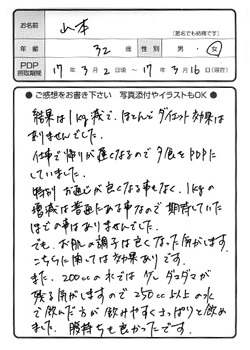 お名前 山本
(匿名でも結構です)
年齢 32歳 性別 男・女
PDP摂取期間 17年3月2日頃〜17年3月16日(現在)
●ご感想をお書き下さい 写真添付やイラストもOK●
結果は1kg減で、ほとんどダイエット効果は
ありませんでした。
仕事で帰りが遅くなるので夕食をPDPに
していました。
特別 お通じが良くなる事もなく、1kgの
増減は普通にある事なので期待していた
ほどの事はありませんでした。
でも、お肌の調子は良くなった気がします。
こちらに関しては効果ありです。
また、200ccの水では 少しダマダマが
残る気がしますので250cc以上の水
で飲んだ方が飲みやすくさっぱりと飲め
ました。腹持ちも良かったです。